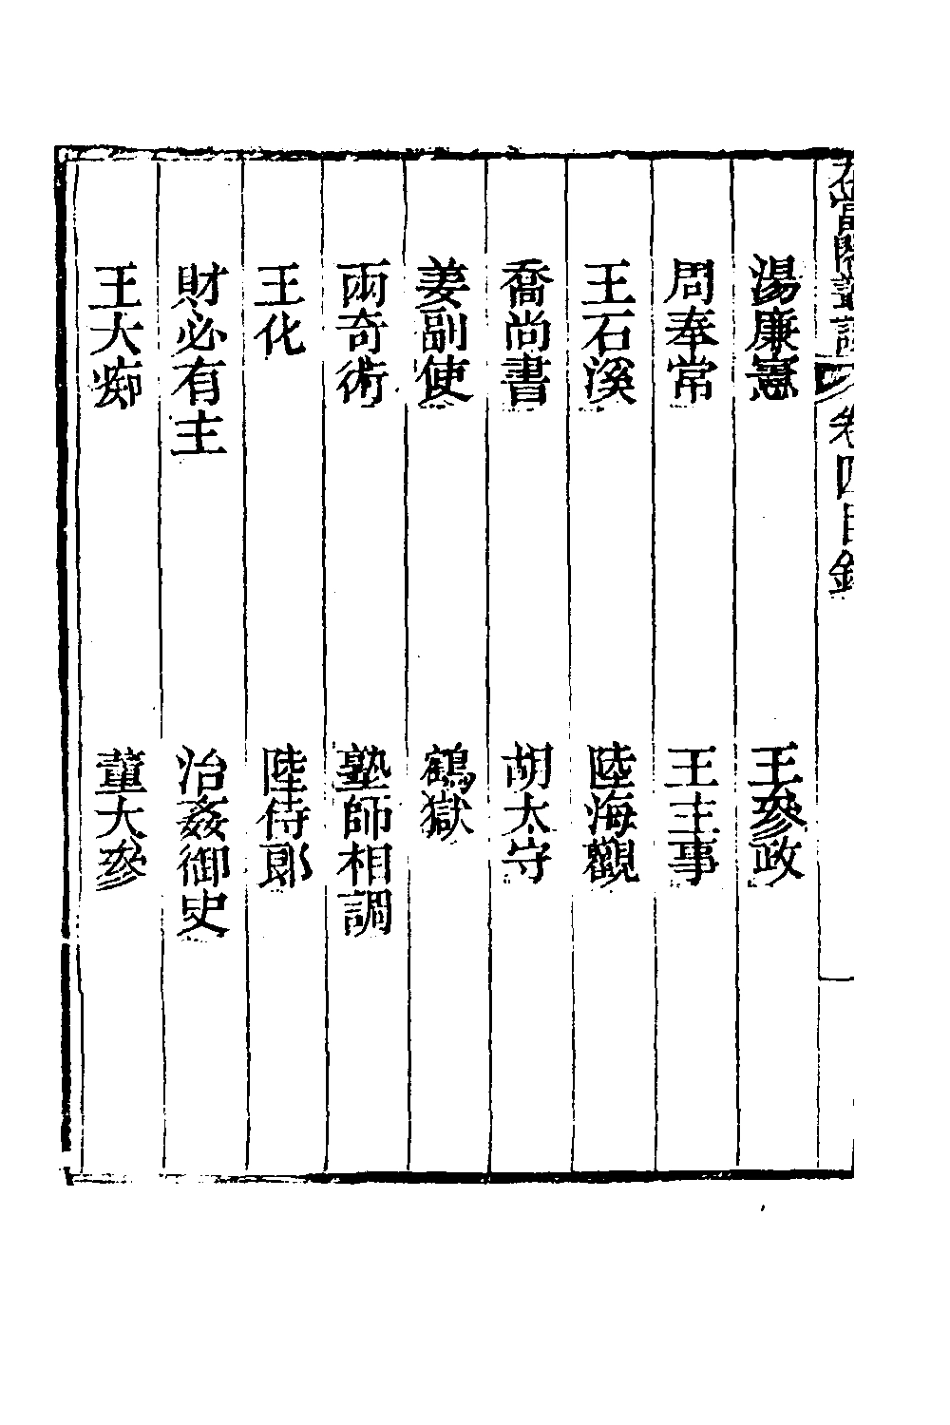 卷四目錄
湯廉憲
王參政
周奉常
王主事
王石溪
陸海觀
喬尚書
胡太守
姜副使
鶴獄
兩奇術
塾師相調
王化
陸侍郎
財必有主
治姦御史
王大痴
董大參